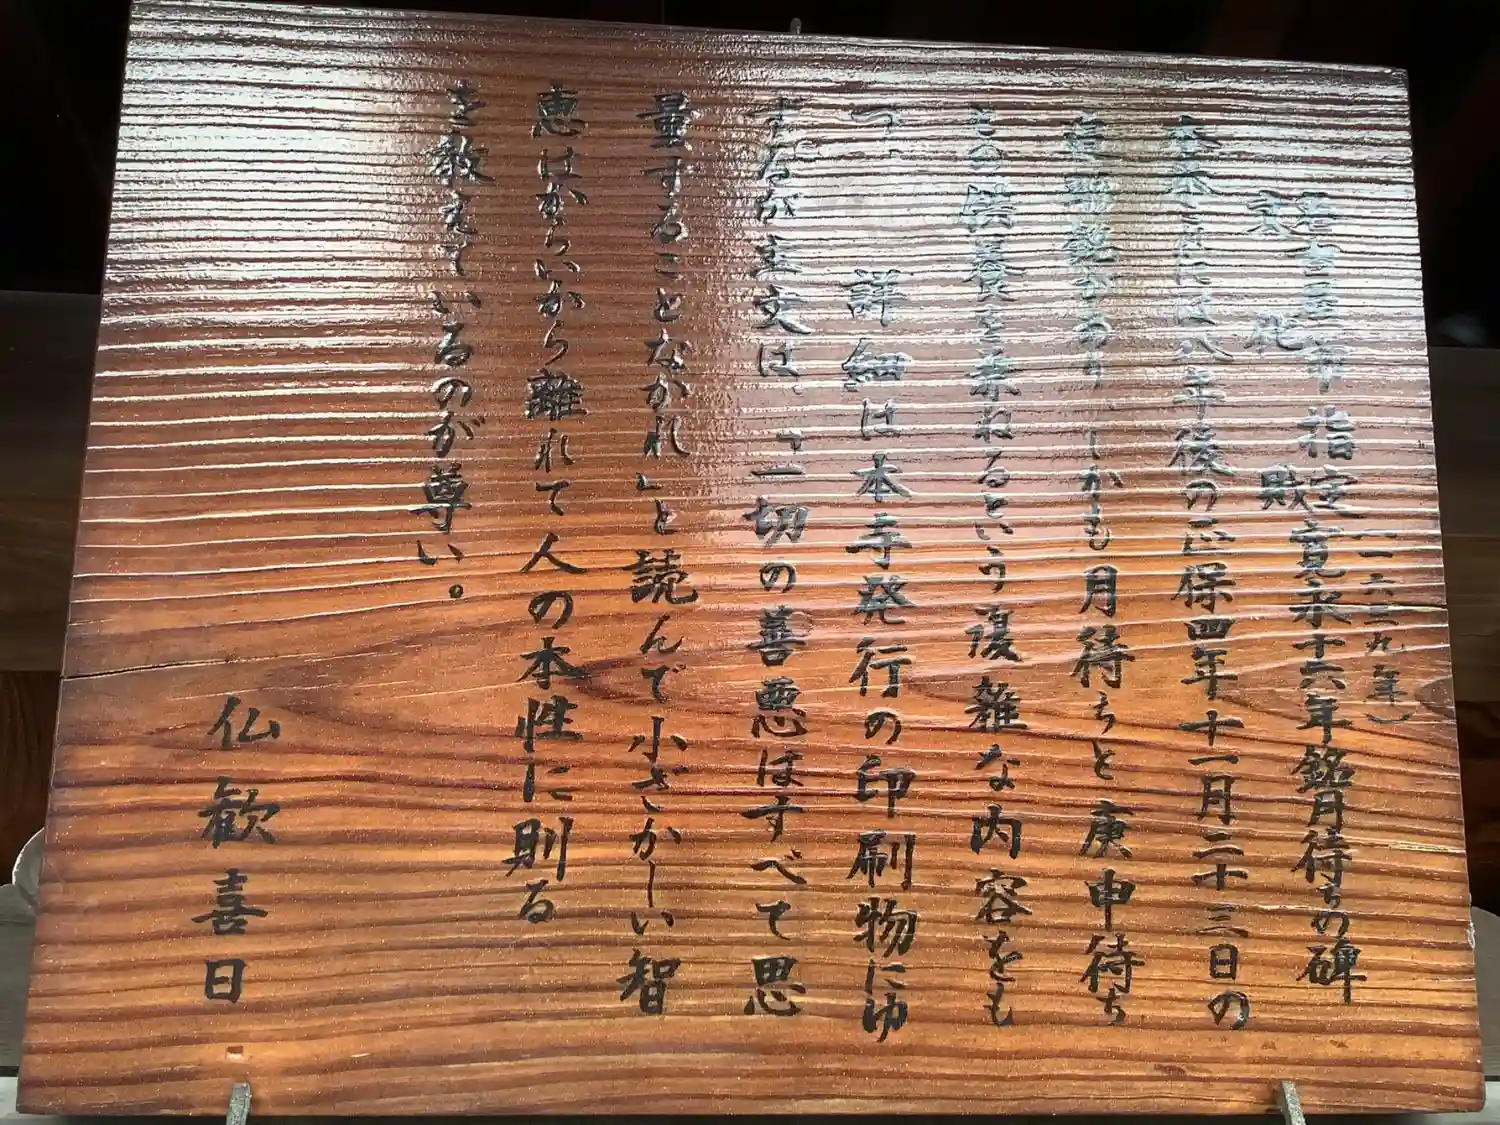 名古屋市指定
文化財
寛永十六年銘月待ちの碑
(一六三九年)
には八年後の正保四年十一月二十三日の
追銘があり、しかも月待ちと庚申待ち
との供養を兼ねるという複雑な内容をも
つ。詳細は本寺発行の印刷物にゆ
ずるが主文は、「一切の善悪はすべて思
量することなかれ」と読んで小ざかしい智
恵はからいから離れて人の本性に則る
を教えているのが尊い。
仏歓喜日